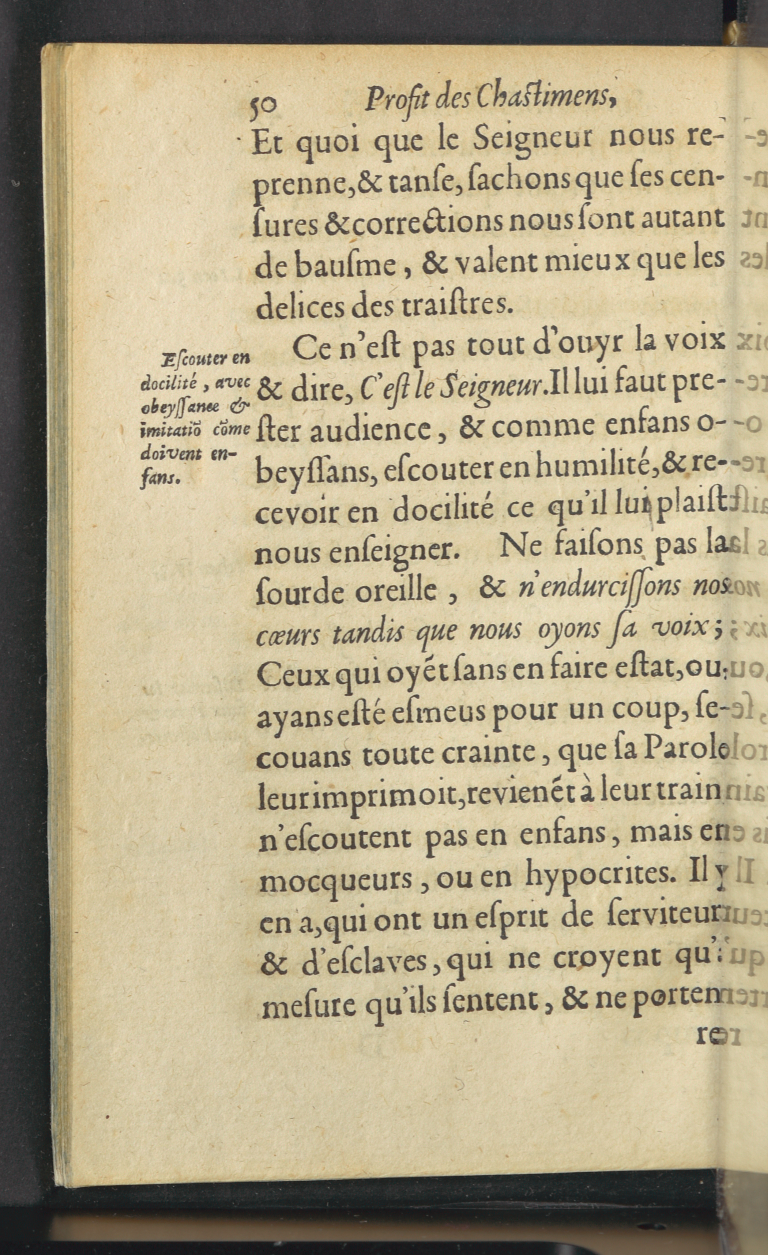 50 Profit des Chaſtimens,
Et quoi que le Seigneur nous re-
prenne, & tanſe, ſachons que ſes cen-
ſures & corrections nous ſont autant
de bauſme, & valent mieux que les
delices des traiſtres.
Ce n'eſt pas tout d'ouyr la voix
& dire, C'eſt le Seigneur. Il lui faut pre-
ſter audience, & comme enfans o-
beyſſans, eſcouter en humilité, & re-
cevoir en docilité ce qu'il lui plaiſt
nous enſeigner. Ne faiſons pas la
ſourde oreille, & n'endurciſſons nos
cœurs tandis que nous oyons ſa voix;
Ceux qui oyẽt ſans en faire eſtat, ou
ayans eſté eſmeus pour un coup, ſe-
couans toute crainte, que ſa Parole
leur imprimoit, revienẽt à leur train
n'eſcoutent pas en enfans, mais en
mocqueurs, ou en hypocrites. Il y
en a, qui ont un eſprit de ſerviteur
& d'eſclaves, qui ne croyent qu'
meſure qu'ils ſentent, & ne porten
re
Eſcouter en
docilité, avec
obeyſſance &
imitatiõ cõme
doivent en-
fans.